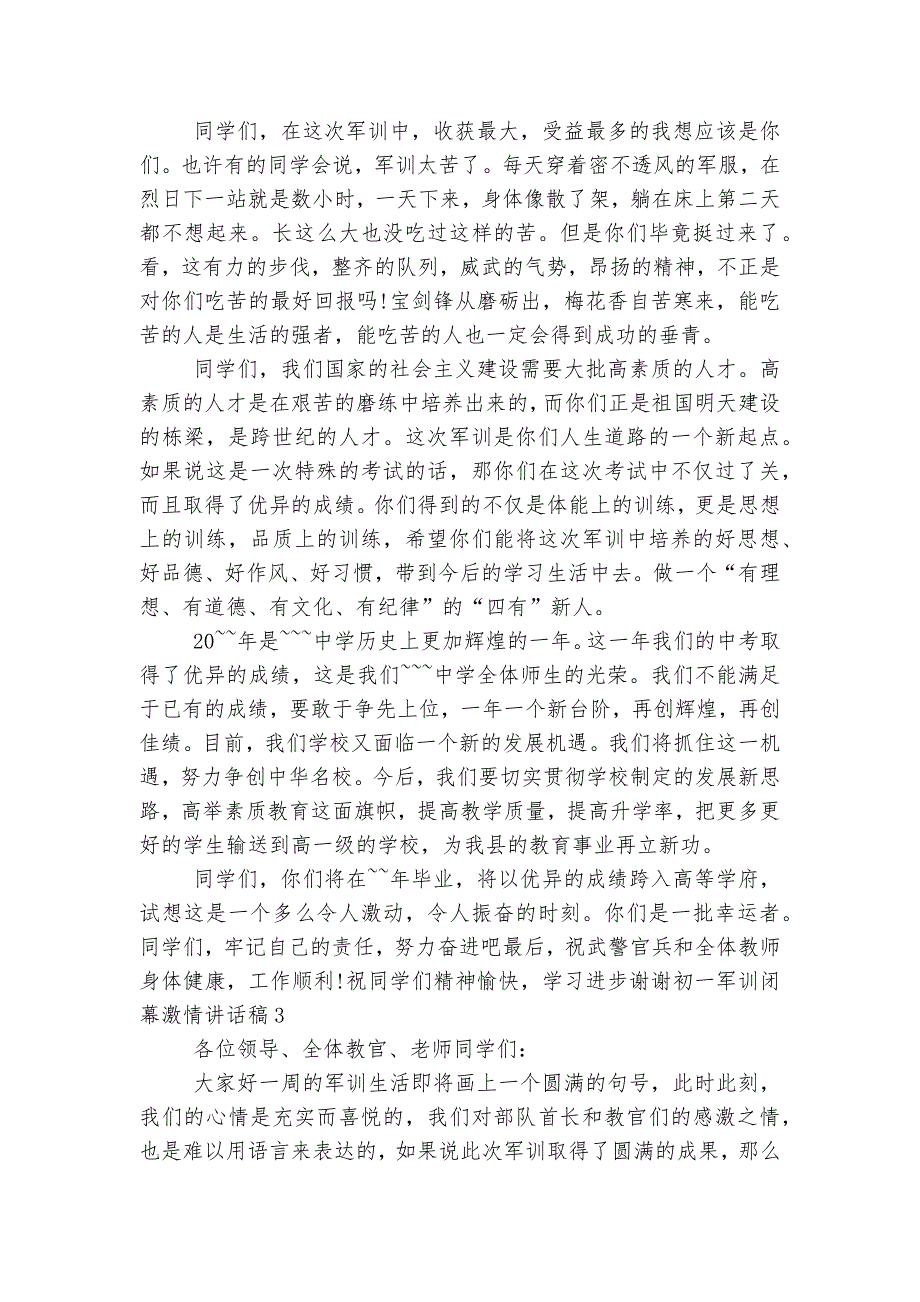 同学们，在这次军训中，收获最大，受益最多的我想应该是你
们。也许有的同学会说，军训太苦了。每天穿着密不透风的军服，在
烈日下一站就是数小时，一天下来，身体像散了架，躺在床上第二天
都不想起来。长这么大也没吃过这样的苦。但是你们毕竟挺过来了。
看，这有力的步伐，整齐的队列，威武的气势，昂扬的精神，不正是
对你们吃苦的最好回报吗!宝剑锋从磨砺出，梅花香自苦寒来，能吃
苦的人是生活的强者，能吃苦的人也一定会得到成功的垂青。
同学们，我们国家的社会主义建设需要大批高素质的人才。高
素质的人才是在艰苦的磨练中培养出来的，而你们正是祖国明天建设
的栋梁，是跨世纪的人才。这次军训是你们人生道路的一个新起点。
如果说这是一次特殊的考试的话，那你们在这次考试中不仅过了关，
而且取得了优异的成绩。你们得到的不仅是体能上的训练，更是思想
上的训练，品质上的训练，希望你们能将这次军训中培养的好思想、
好品德、好作风、好习惯，带到今后的学习生活中去。做一个“有理
想、有道德、有文化、有纪律”的“四有”新人。
20~~年是~~~中学历史上更加辉煌的一年。这一年我们的中考取
得了优异的成绩，这是我们~~~中学全体师生的光荣。我们不能满足
于已有的成绩，要敢于争先上位，一年一个新台阶，再创辉煌，再创
佳绩。目前，我们学校又面临一个新的发展机遇。我们将抓住这一机
遇，努力争创中华名校。今后，我们要切实贯彻学校制定的发展新思
路，高举素质教育这面旗帜，提高教学质量，提高升学率，把更多更
好的学生输送到高一级的学校，为我县的教育事业再立新功。
同学们，你们将在~~年毕业，将以优异的成绩跨入高等学府，
试想这是一个多么令人激动，令人振奋的时刻。你们是一批幸运者。
同学们，牢记自己的责任，努力奋进吧最后，祝武警官兵和全体教师
身体健康，工作顺利!祝同学们精神愉快，学习进步谢谢初一军训闭
幕激情讲话稿3
各位领导、全体教官、老师同学们：
大家好一周的军训生活即将画上一个圆满的句号，此时此刻，
我们的心情是充实而喜悦的，我们对部队首长和教官们的感激之情，
也是难以用语言来表达的，如果说此次军训取得了圆满的成果，那么